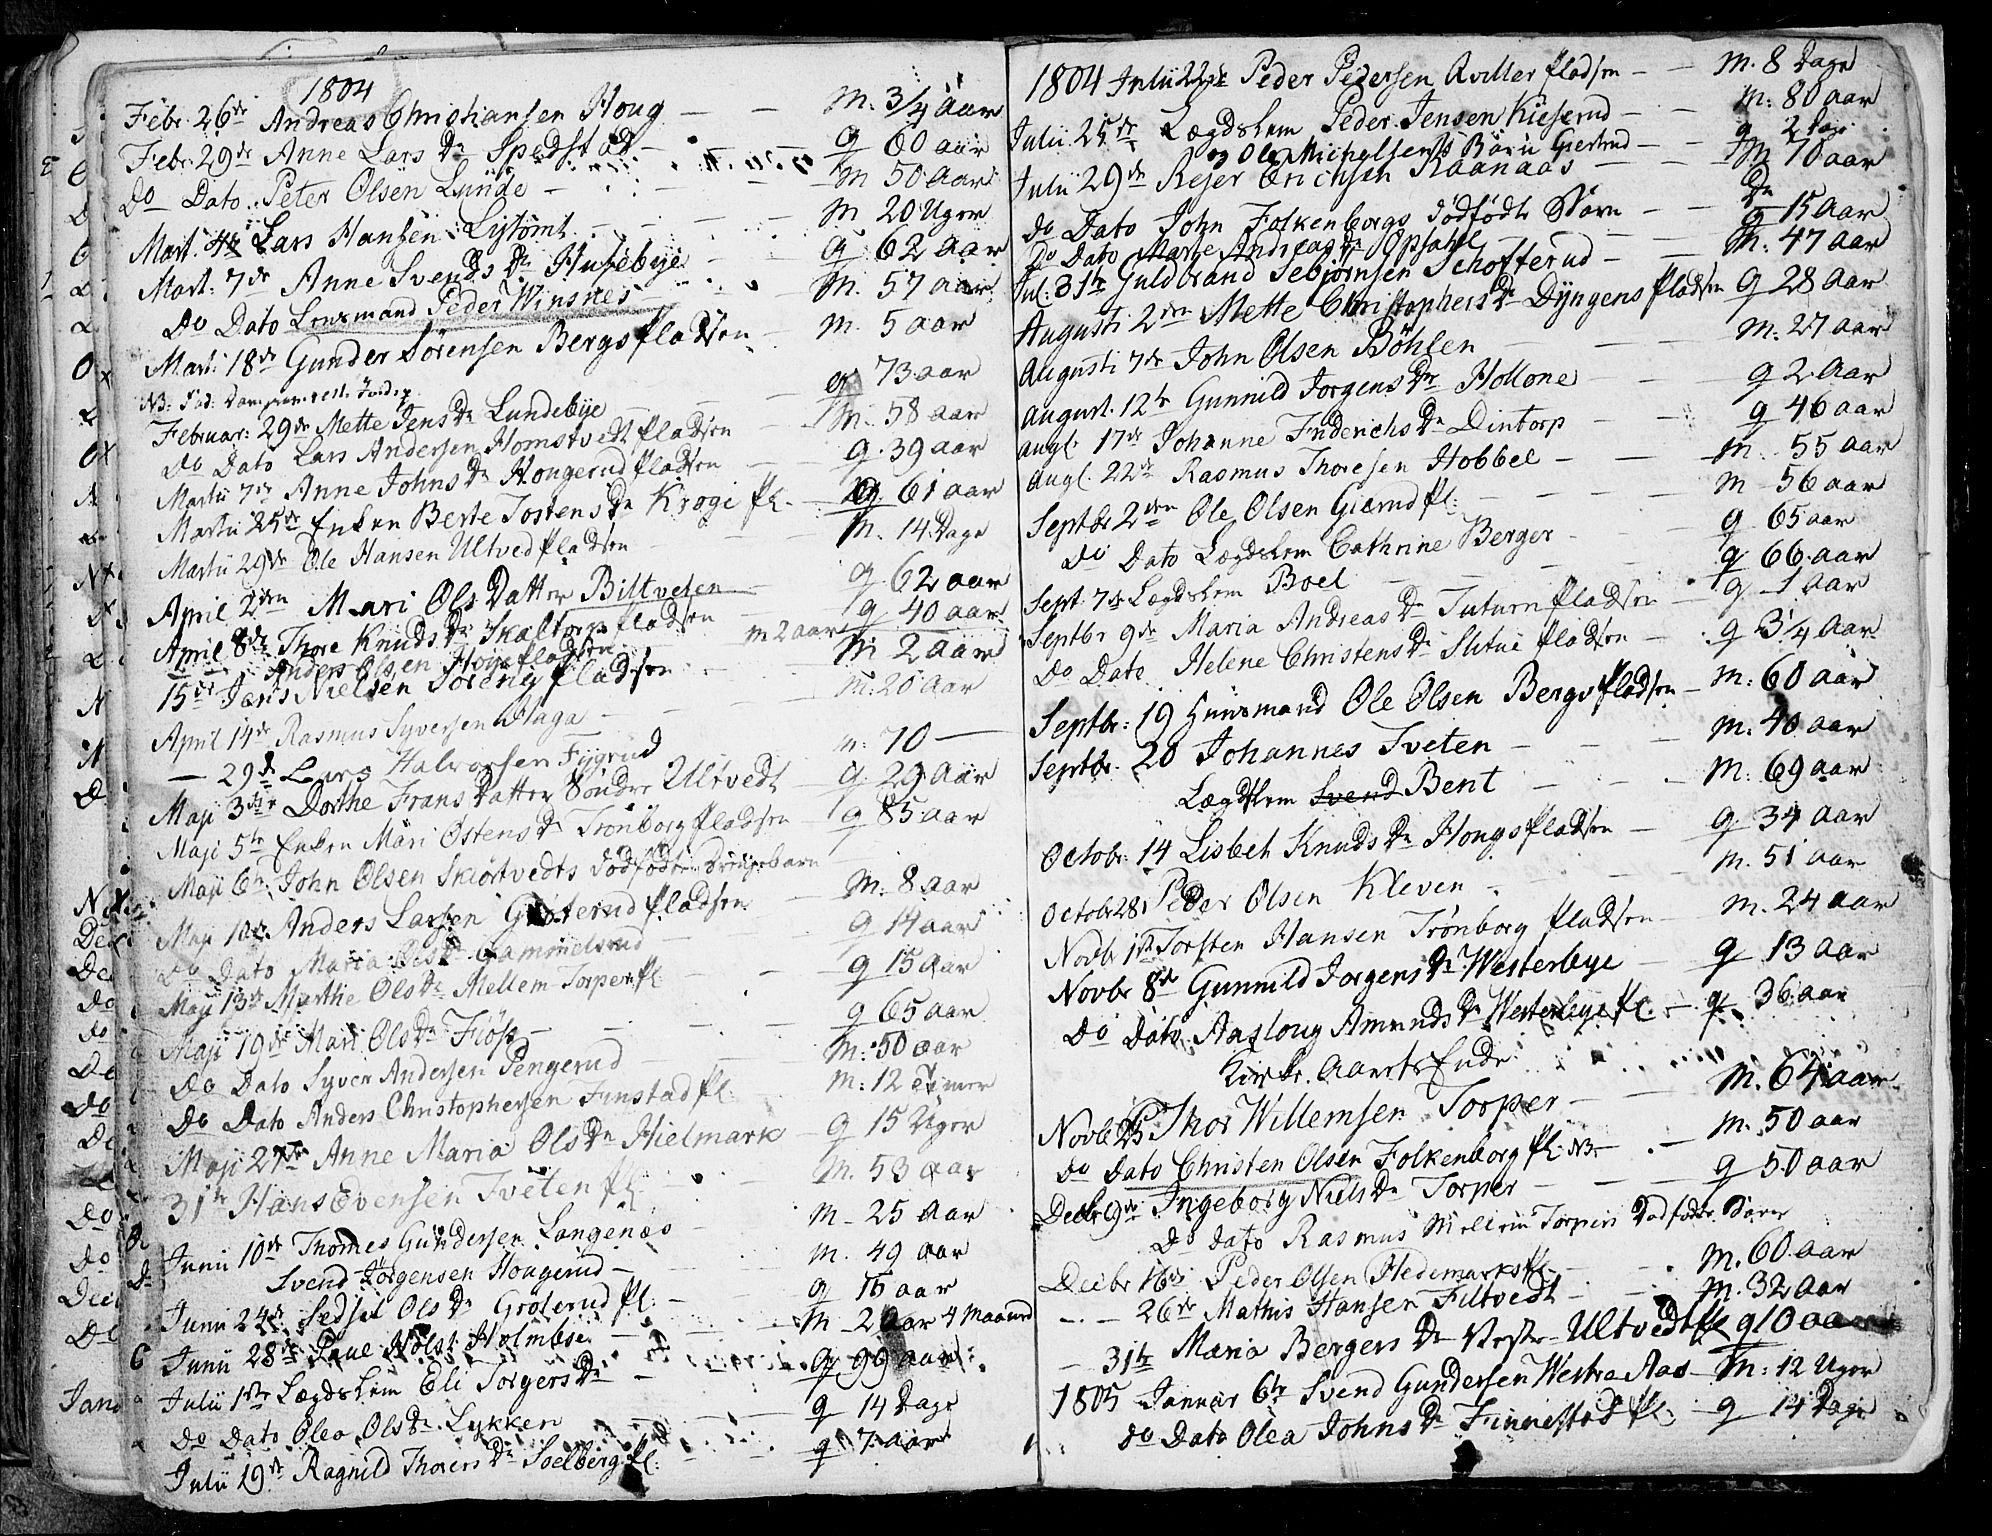 1804
Febr. 26de Andreas Christiansen Houg — — M: 3/4 aar
Febr. 29de Anne Lars Dr Spedstad — q 60 aar
Do — Dato Peter Olsen Lunde — M 50 aar
Mart. 4de Lars Hansen Lystomt — — M 20 Uger
Mart: 7de Anne Svends Dr Husebye — q 62 aar
Do Dato Lensmand Peder Winsnes — M. 57 aar
Mart: 18de Gunder Sörensen Bergs pladsen — M. 5 aar
NB:
Februar: 29de Mette Jens Dr Lundebye — q 73 aar
Do Dato Lars Andersen Homstvedt pladsen — M: 58 aar
Martii 7de Anne Johns Dr Hougerud pladsen — q. 39 aar
Martii 25de Enken Berte Tostens Dr Krogs pl. — q. 61 aar
Martii 29de Ole Hansen Ultved pladsen — M. 14 Dage
April 2den Mari Ols Datter Biltveten — q. 62 aar
April 8de Thore Knuds Dr Skaltorp pladsen — q 40 aar
Anders Olsen Hoye pladsen m 2 aar
15de Jens Nielsen Söreng pladsen — M 2 aar
April 14de Rasmus Syversen Haga — M: 20 aar
— 29de Lars Halvorsen Fygrud — M: 70 —
Maji 3die Dorthe Frans Datter Söndre Ultvedt — q. 29 aar
Maji 5te Enken Mari Östens Dr Trönborg pladsen — q 85 aar
Maji 6te John Olsen Skiörtvedts dödfödte Drengebarn
Maji 10de Anders Larsen Groterud pladsen — M: 8 aar
Do Dato Maria Ols Dr Gammelsrud — q 14 aar
Maji 13de Marthe Ols Dr Mellem Torper pl — q 15 aar
Maji 19de Mari Ols Dr Flöss — q 65 aar
Do Dato Syver Andersen Pengerud — M: 50 aar
Do Dato Anders Christophersen Finstad pl. — M: 12 Timer
Maji 27de Anne Maria Ols Dr Hielmark — q 15 Uger
31te Hans Evensen Tveten pl — M. 53 aar
Junii 10de Thomes Gundersen Langenæs — M — 25 aar
Svend Jörgensen Hougerud — M. 49 aar
Junii 24de Sedsel Ols Dr Groterud pl: — q 15 aar
Junii 28de Poul Nolst Holmbse — M 2 aar 4 Maaned
Julii 1ste Lægdslem Eli Torgers Dr — q 99 aar
Do Dato Olea Ols Dr Lykken — q 14 Dage
Julii 19de Ragnild Thorers Dr Soelberg pl: — q 7 aar
1804 Julii 22de Peder Pedersen Qviller pladsen — — M. 8 Dage
Julii 25de Lægdslem Peder Jensen Kieserud — M: 80 aar
Ole Michelsens Barn Giertrud — q 2 Dage
Julii 29de Rejer Erichsen Raanaas — M 70 aar
Do Dato John Folkenborgs dödfödte Barn — Dr
Do Dato Marte Andreas Dr Opsahl — q 15 aar
Jul: 31te Guldbrand Sebjörnsen Schofterud — M: 47 aar
Augusti 2den Mette Christophers Dr Dyngens pladsen q 28 aar
Augusti 7de John Olsen Böhlen — M: 27 aar
August. 12te Gunnild Jorgens Dr Hollone — q 2 aar
Augl. 17de Johanne Friderichs Dr Dintorp — q 46 aar
Augl. 22de Rasmus Thoresen Hobbel — M. 55 aar
Septbr 2den Ole Olsen Gierud pl: — M 56 aar
Do Dato Lægdslem Cathrine Berger — q 65 aar
Sept 7de Lægdslem Boel — q 66 aar
Septbr 9de Maria Andreas Dr Tuturn pladsen — q 1 aar
Do Dato Helene Christens Dr Slitue pladsen — q 3/4 aar
Septbr: 19 Huusmand Ole Olsen Bergs pladsen — M: 60 aar
Septbr. 20 Johannes Tveten — M: 40 aar
Lægdslem Svend Bent — M: 69 aar
Octobr: 14 Lisbeth Knuds Dr Hougs pladsen — q. 34 aar
Octobr 28 Peder Olsen Kleven — M. 51 aar
Novbr 1ste Torsten Hansen Trönborg pladsen — M. 24 aar
Novbr 8de Gunnild Jorgens Dr Westerbye — q 13 aar
Do Dato Aasloug Amunds Dr Westerbye pl. — q. 36 aar
Kirke Aarets Ende
Novbr 25 Thor Willemsen Torper — M. 64 aar
Do Dato Christen Olsen Folkenborg pl: NB — M. 50 aar
Decbr 9de Ingeborg Niels Dr Torper — q 50 aar
Do Dato Rasmus Mellem Torpers Dödfödte Barn
Decbr 16de Peder Olsen Hedemarks pl — M. 60 aar
— — 26de Mathis Hansen Filtvedt — M. 32 aar
— 31te Maria Bergers Dr Vestre Ultvedt pl q 10 aar
1805 Januar 6te Svend Gundersen Westre Aas — M: 12 Uger
Do Dato Olea Johns Dr Finnestad pl. — q 14 Dage